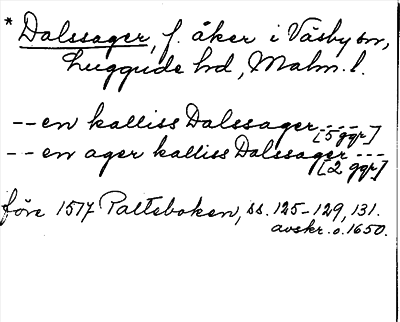 * Dalssager, f. åker i Väsby sn,
Luggude hd, Malm. l.
-- en kalliss Dalssager ---- [5 ggr]
-- en ager kalliss Dalssager --- [2 ggr]
före 1517 Palteboken, ss. 125-129, 131.
avskr. o. 1650.